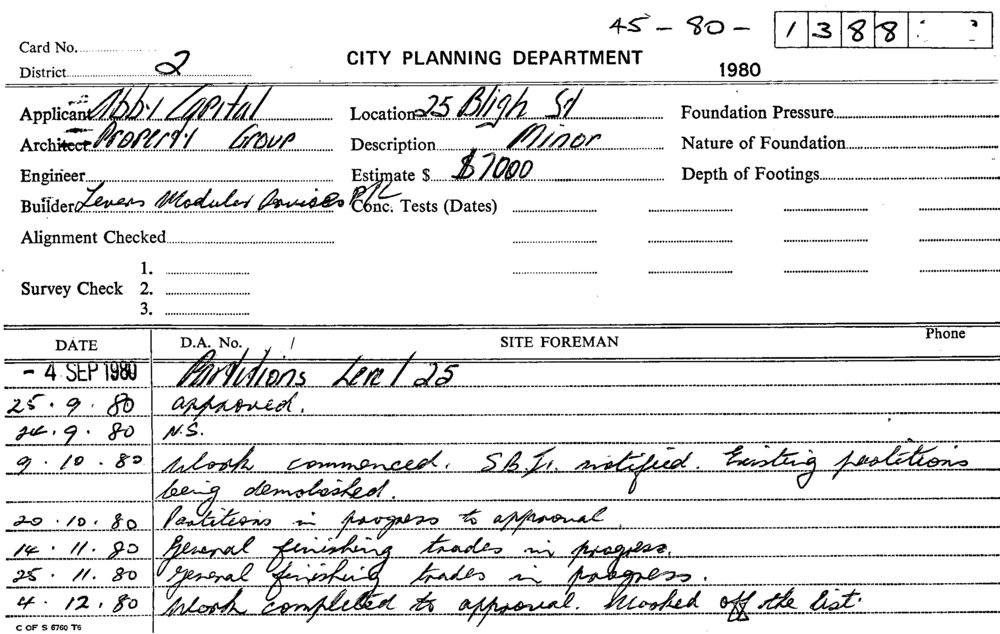 45 - 80 - 1388
Card No.
District 2
CITY PLANNING DEPARTMENT
1980
Applicant Abbil Capital
Location 25 Bligh St
Foundation Pressure
Architect Property Group
Description Minor
Nature of Foundation
Engineer
Estimate $ $7000
Depth of Footings
Builder Levers Modular P/L
Conc. Tests (Dates)
Alignment Checked
Survey Check
1.
2.
3.
DATE D.A. No. / SITE FOREMAN Phone
- 4 SEP 1980 Partitions Level 25
25 . 9 . 80 approved.
24 . 9 . 80 N.S.
9 . 10 . 80 Work commenced. notified. Existing partitions
being demolished.
20 . 10 . 80 Partitions in progress to approval.
14 . 11 . 80 General finishing trades in progress.
25 . 11 . 80 General finishing trades in progress.
4 . 12 . 80 Work completed to approval. Marked off the list.
C OF S 6760 T6